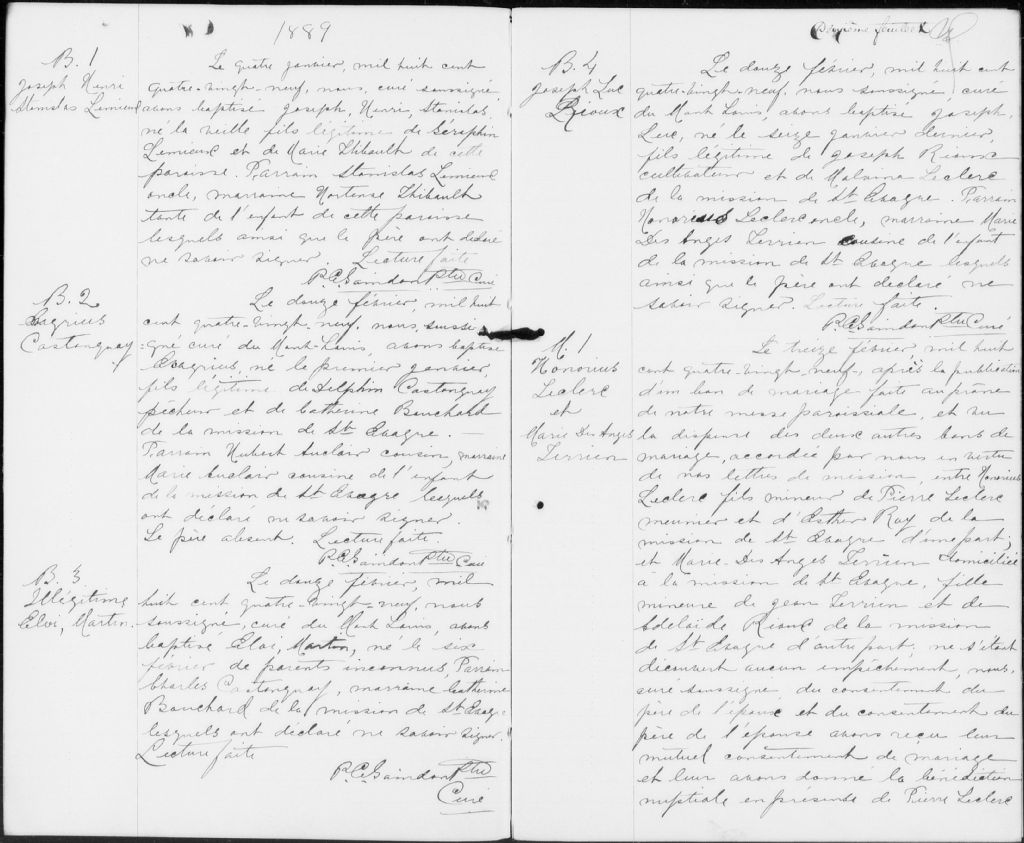 1889
B. 1
Joseph Henri
Stanislas Lemieux
Le quatre janvier, mil huit cent
quatre-vingt-neuf, nous, curé soussigné
avons baptisé Joseph, Henri, Stanislas,
né la veille fils légitime de Séraphin
Lemieux et de Marie Thibault de cette
paroisse. Parrain Stanislas Lemieux
oncle, marraine Hortense Thibault
tante de l'enfant de cette paroisse
lesquels ainsi que le père ont déclaré
ne savoir signer. Lecture faite
P.C. Saindon Ptre Curé
B. 2
Evagrius
Castonguay
Le douze février, mil huit
cent quatre-vingt-neuf, nous, soussi-
gné curé du Mont-Louis, avons baptisé
Evagrius, né le premier janvier,
fils légitime de Delphin Castonguay
pêcheur et de Catherine Bouchard
de la mission de St Evagre. —
Parrain Hubert Auclair cousin, marraine
Marie Auclair cousine de l'enfant
de la mission de St Evagre lesquels
ont déclaré ne savoir signer.
Le père absent. Lecture faite.
P.C. Saindon Ptre Curé
B. 3
Illégitime
Eloi, Martin.
Le douze février, mil
huit cent quatre-vingt-neuf, nous
soussigné, curé du Mont Louis, avons
baptisé Eloi, Martin, né le six
février de parents inconnus, Parrain
Charles Castonguay, marraine Catherine
Bouchard de la mission de St Evagre
lesquels ont déclaré ne savoir signer.
Lecture faite
P.C. Saindon Ptre
Curé
Deuxième feuillet
B. 4
Joseph Luc
Rioux
Le douze février, mil huit cent
quatre-vingt-neuf, nous soussigné curé
du Mont Louis, avons baptisé Joseph,
Luc, né le seize janvier dernier,
fils légitime de Joseph Rioux
cultivateur et de Malvina Leclerc
de la mission de St Evagre. Parrain
Honorius Leclerc oncle, marraine Marie
Des Anges Terrien cousine de l'enfant
de la mission de St Evagre lesquels
ainsi que le père ont déclaré ne
savoir signer. Lecture faite
P.C. Saindon Ptre Curé
M. 1
Honorius
Leclerc
et
Marie Des Anges
Terrien
Le treize février, mil huit
cent quatre-vingt-neuf, après la publication
d'un ban de mariage faite au prône
de notre messe paroissiale, et vu
la dispense des deux autres bans de
mariage, accordée par nous en vertu
de nos lettres de mission, entre Honorius
Leclerc fils mineur de Pierre Leclerc
meunier et d'Esther Roy de la
mission de St Evagre d'une part;
et Marie-Des Anges Terrien domiciliée
a la mission de St Evagre, fille
mineure de Jean Terrien et de
Adelaide Rioux de la mission
de St Evagre d'autre part; ne s'étant
découvert aucun empêchement, nous,
curé soussigné, du consentement du
père de l'époux et du consentement du
père de l'épouse avons reçu leur
mutuel consentement de mariage
et leur avons donné la bénédiction
nuptiale en présence de Pierre Leclerc